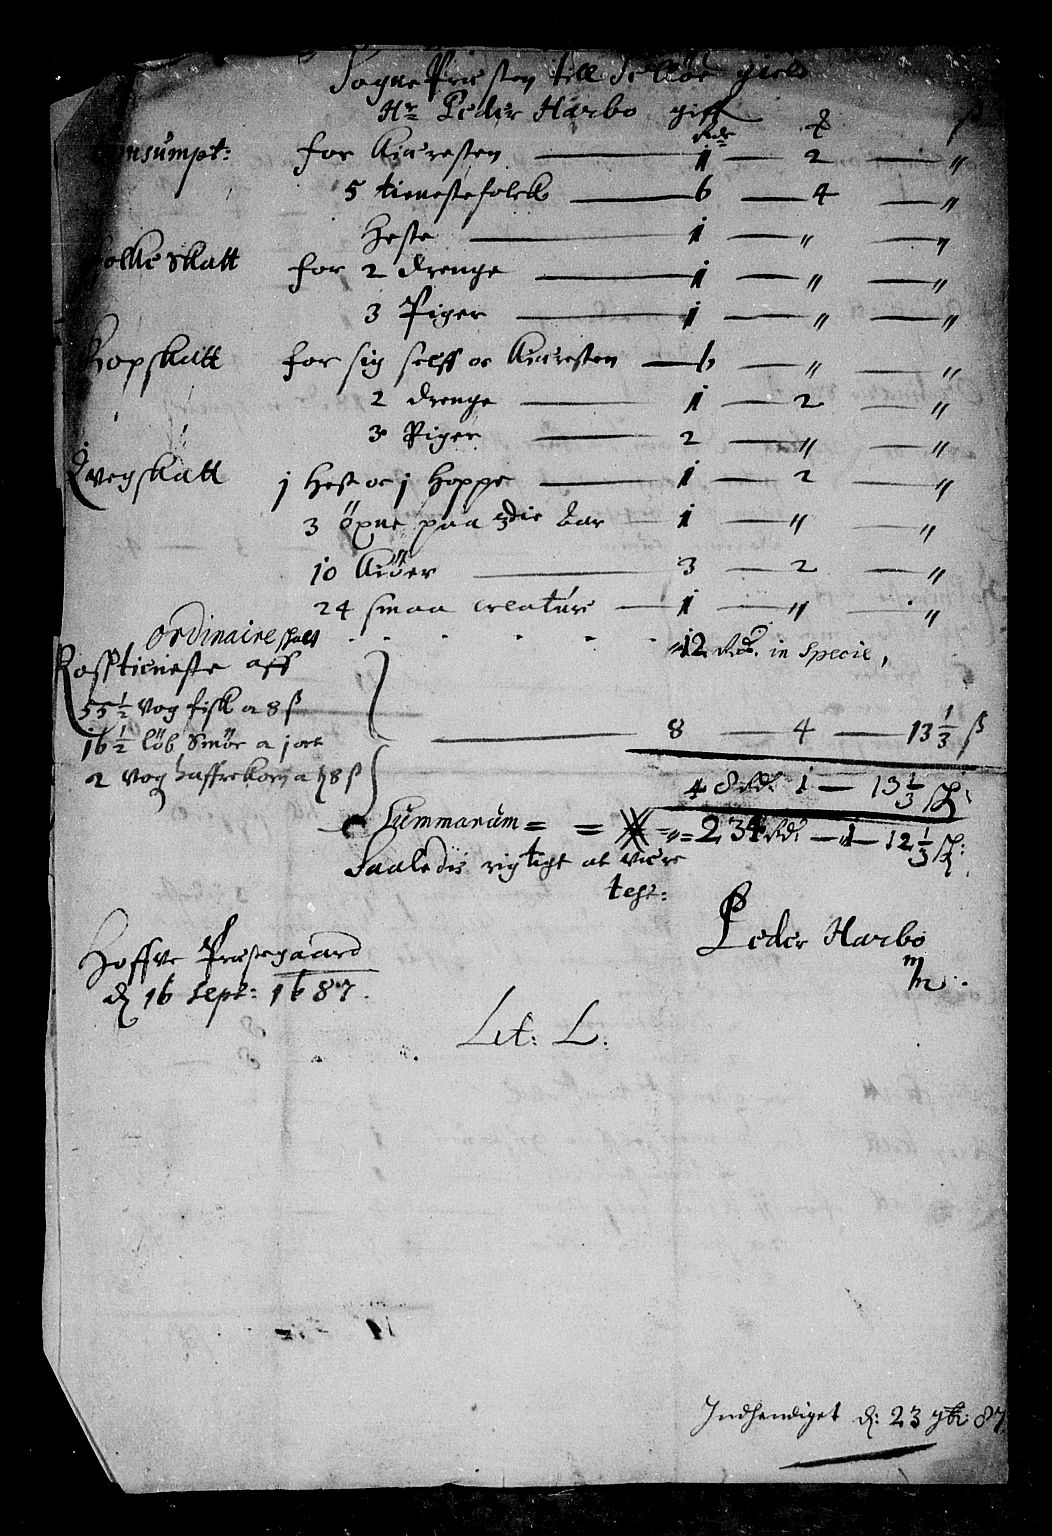 Sogne Præsten till Selløe gield
Hr Peder Harbo giff
Rdr ß
Consumpt: for Kiæresten — 1 — 2 — "
5 tienestefolck — 6 — 4 — "
heste — 1 — " — "
Folke skatt for 2 drenge — 1 — " — "
3 Piger — 1 — " — "
Kopskatt for sig selff oc Kiæresten — 6 — " — "
2 drenge — 1 — 2 — "
3 Piger — 2 — " — "
Qvegskatt j hest oc j hoppe — 1 — 2 — "
3 öxne paa 3die aar — 1 — " — "
10 Kiöer — 3 — 2 — "
24 smaa creature — 1 — " — "
ordinaire skatt . . . . . . "12 Rdr. in Specie,
Rosstieneste aff
55 1/2 vog fisk a 8 ß
16 1/2 löb Smör a j ort — 8 — 4 — 13 1/3 ß
2 vog haffrekorn a 8 ß
48 Rdr 1 — 13 1/3 ß
Summarum = = " = 234 Rdr — 1 — 12 1/3 ß:
Saaledis rigtigt at være
test:
Peder Harbo
m
Hoffve Præstegaard
d 16 Sept: 1687.
Lit: L.
Indhendiget d: 23 9br: 87.